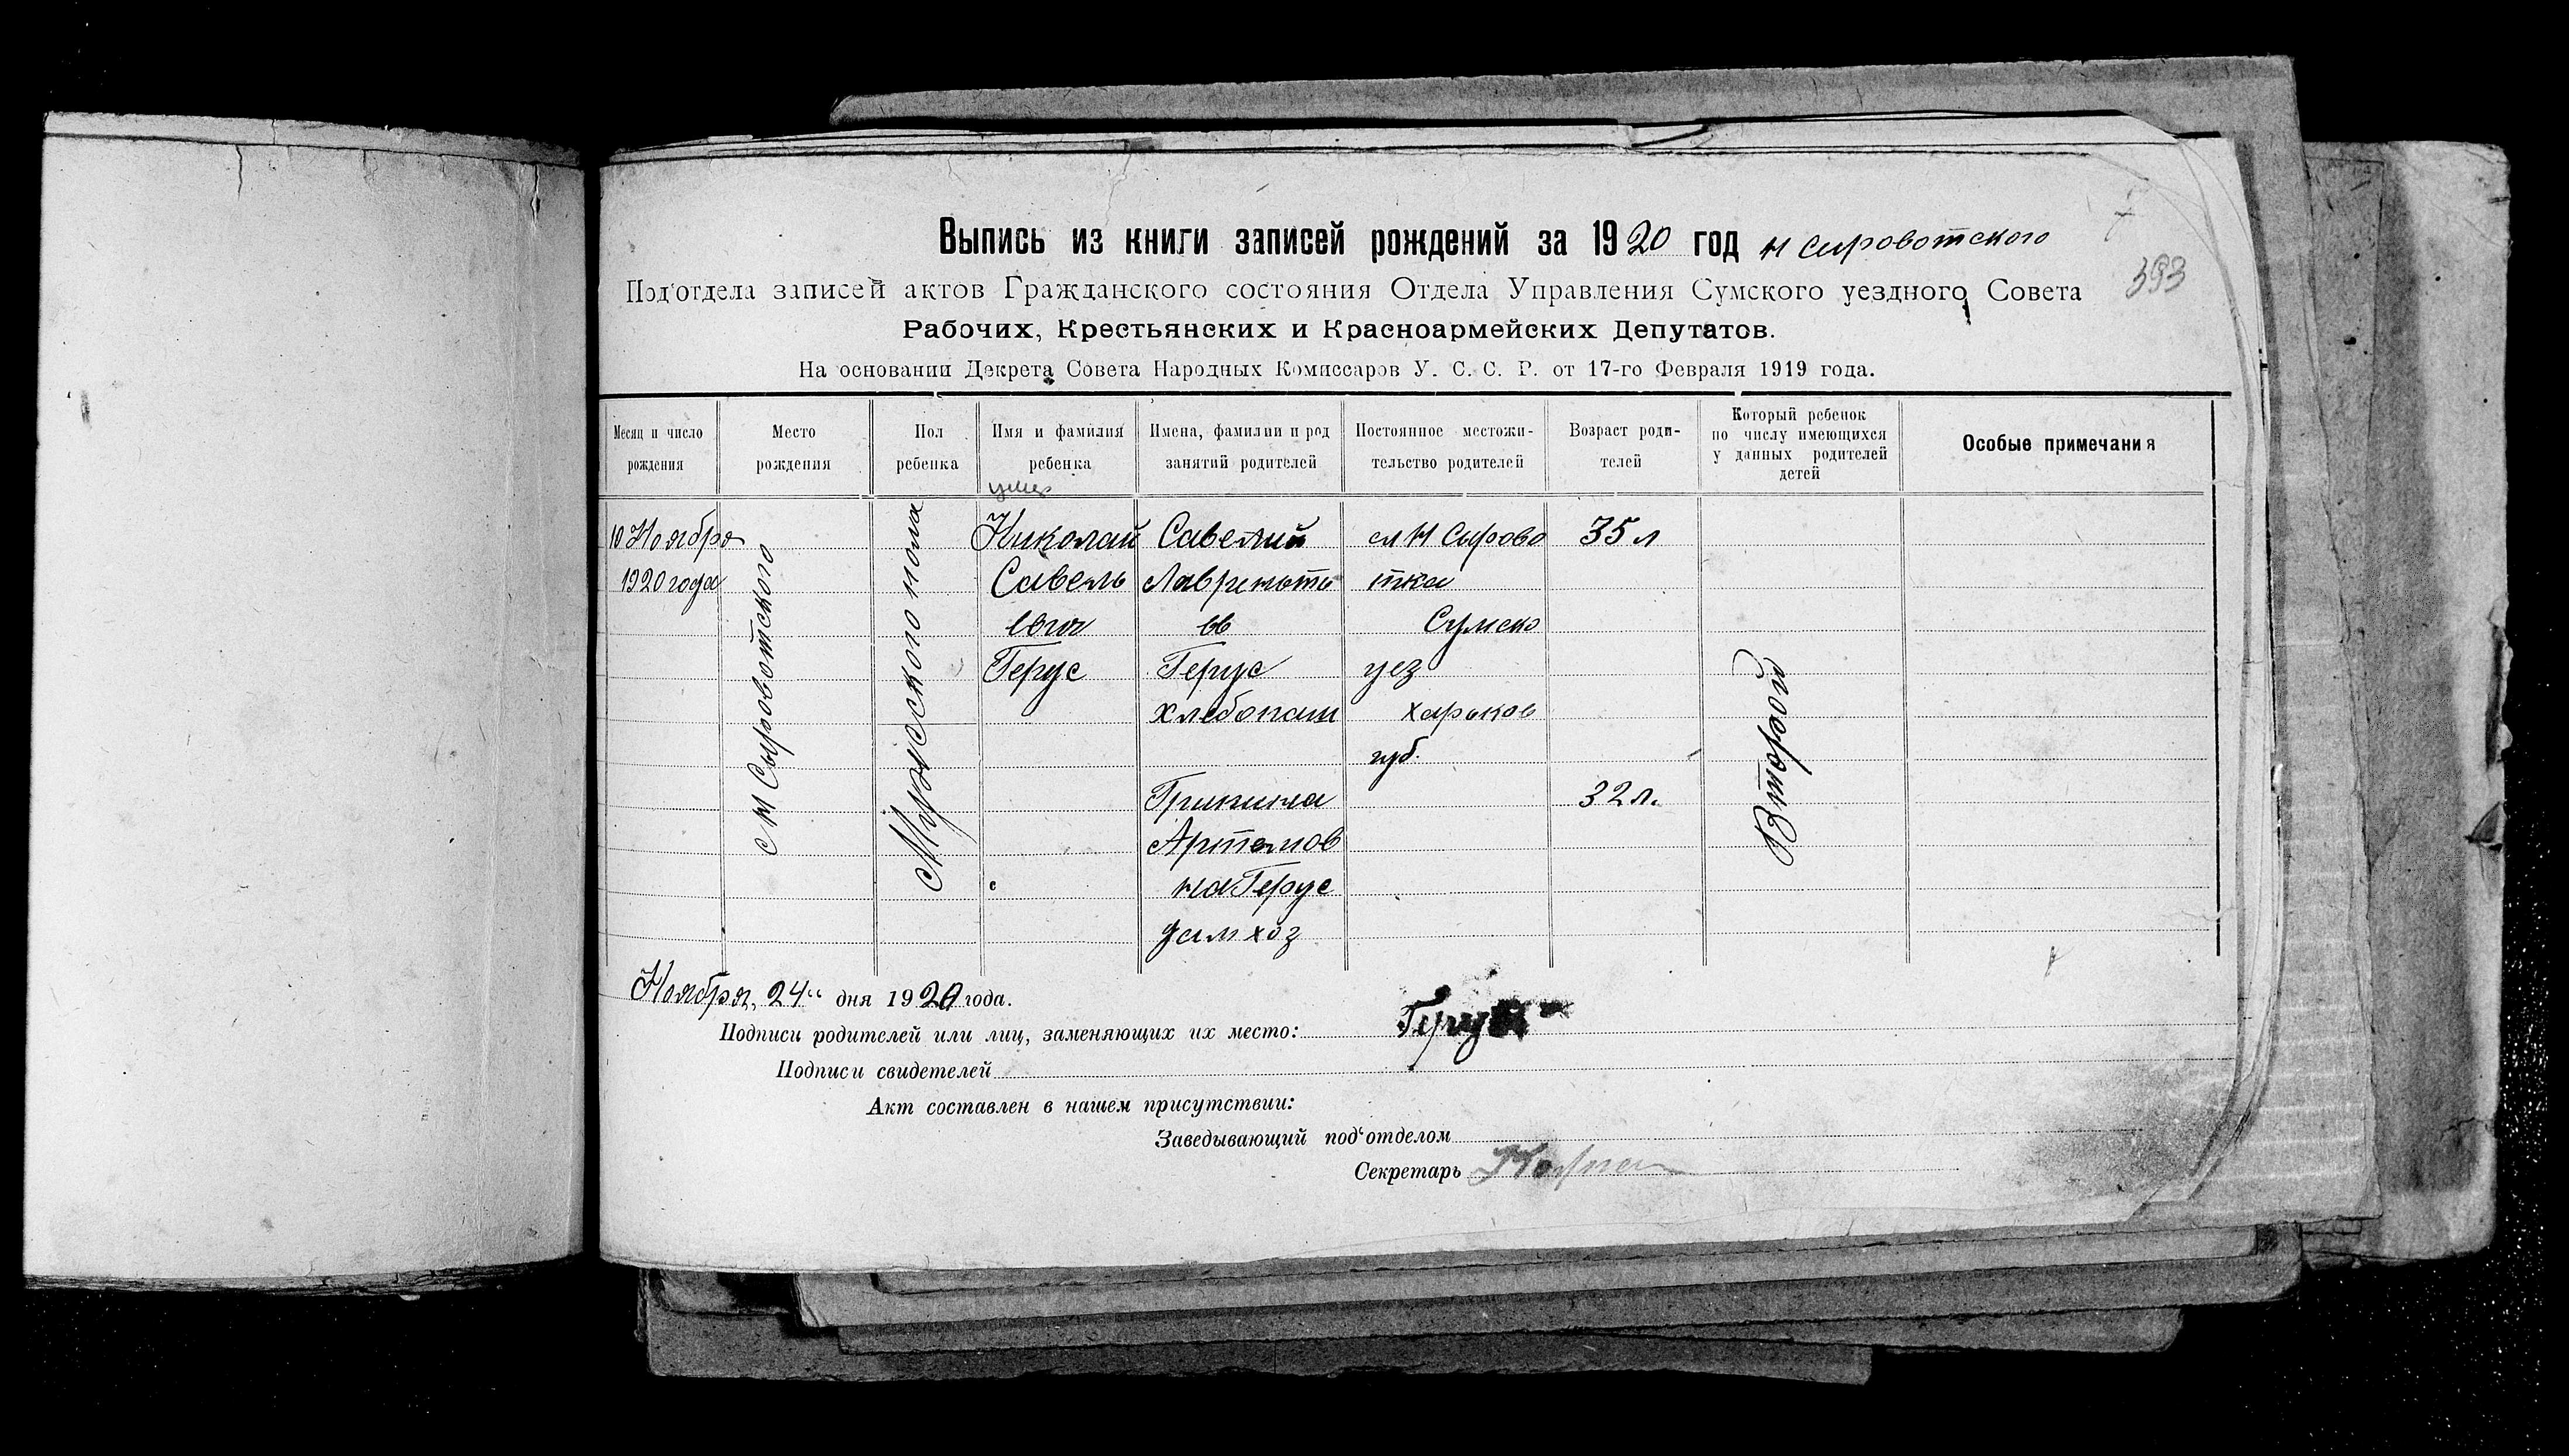 Выпись из книги записей рождений за 1920 год Н Сыровотского
393
Под'отдела записей актов Гражданского состояния Отдела Управления Сумского уездного Совета
Рабочих, Крестьянских и Красноармейских Депутатов.
На основании Декрета Совета Народных Комиссаров У. С. С. Р. от 17-го Февраля 1919 года.
Месяц и число рождения
Место рождения
Пол ребенка
Имя и фамилия ребенка
Имена, фамилии и род занятий родителей
Постоянное местожительство родителей
Возраст родителей
Который ребенок по числу имеющихся у данных родителей детей
Особые примечания
умер
10 Ноября
1920 года
с Н Сыровотского
Мужеского пола
Николай
Савель
евич
Герус
Савелий
Лавреноть
ев
Герус
хлебопаш
Грипина
Артемов
на Герус
дам хоз
сл Н Сырово
тка
Сумско
уез
харьков
губ.
35 л
32 л.
Второй
Ноября „24“ дня 1920 года.
Подписи родителей или лиц, заменяющих их место: Герус
Подписи свидетелей
Акт составлен в нашем присутствии:
Заведывающий под'отделом
Секретарь